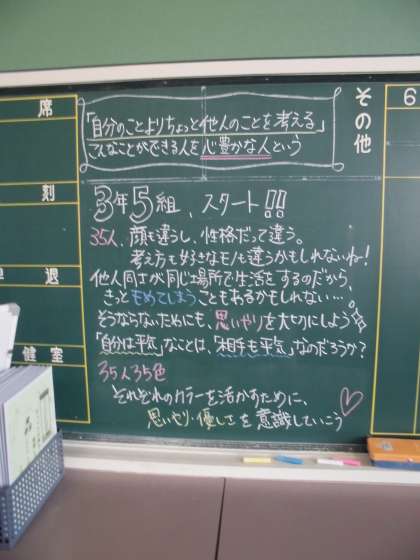 「自分のことよりちょっと他人のことを考える」
こんなことができる人を心豊かな人という
3年5組、スタート!!
35人、顔も違うし、性格だって違う。
考え方も好きなモノも違うかもしれないねー!
他人同士が同じ場所で生活をするのだから、
きっともめてしまうこともあるかもしれない…。
そうならないためにも、思いやりを大切にしよう☆
「自分は平気」なことは、「相手も平気」なのだろうか?
35人35色
それぞれのカラーを活かすために、
思いやり・優しさを意識していこう♡
席
刻
早退
保健室
その他
6